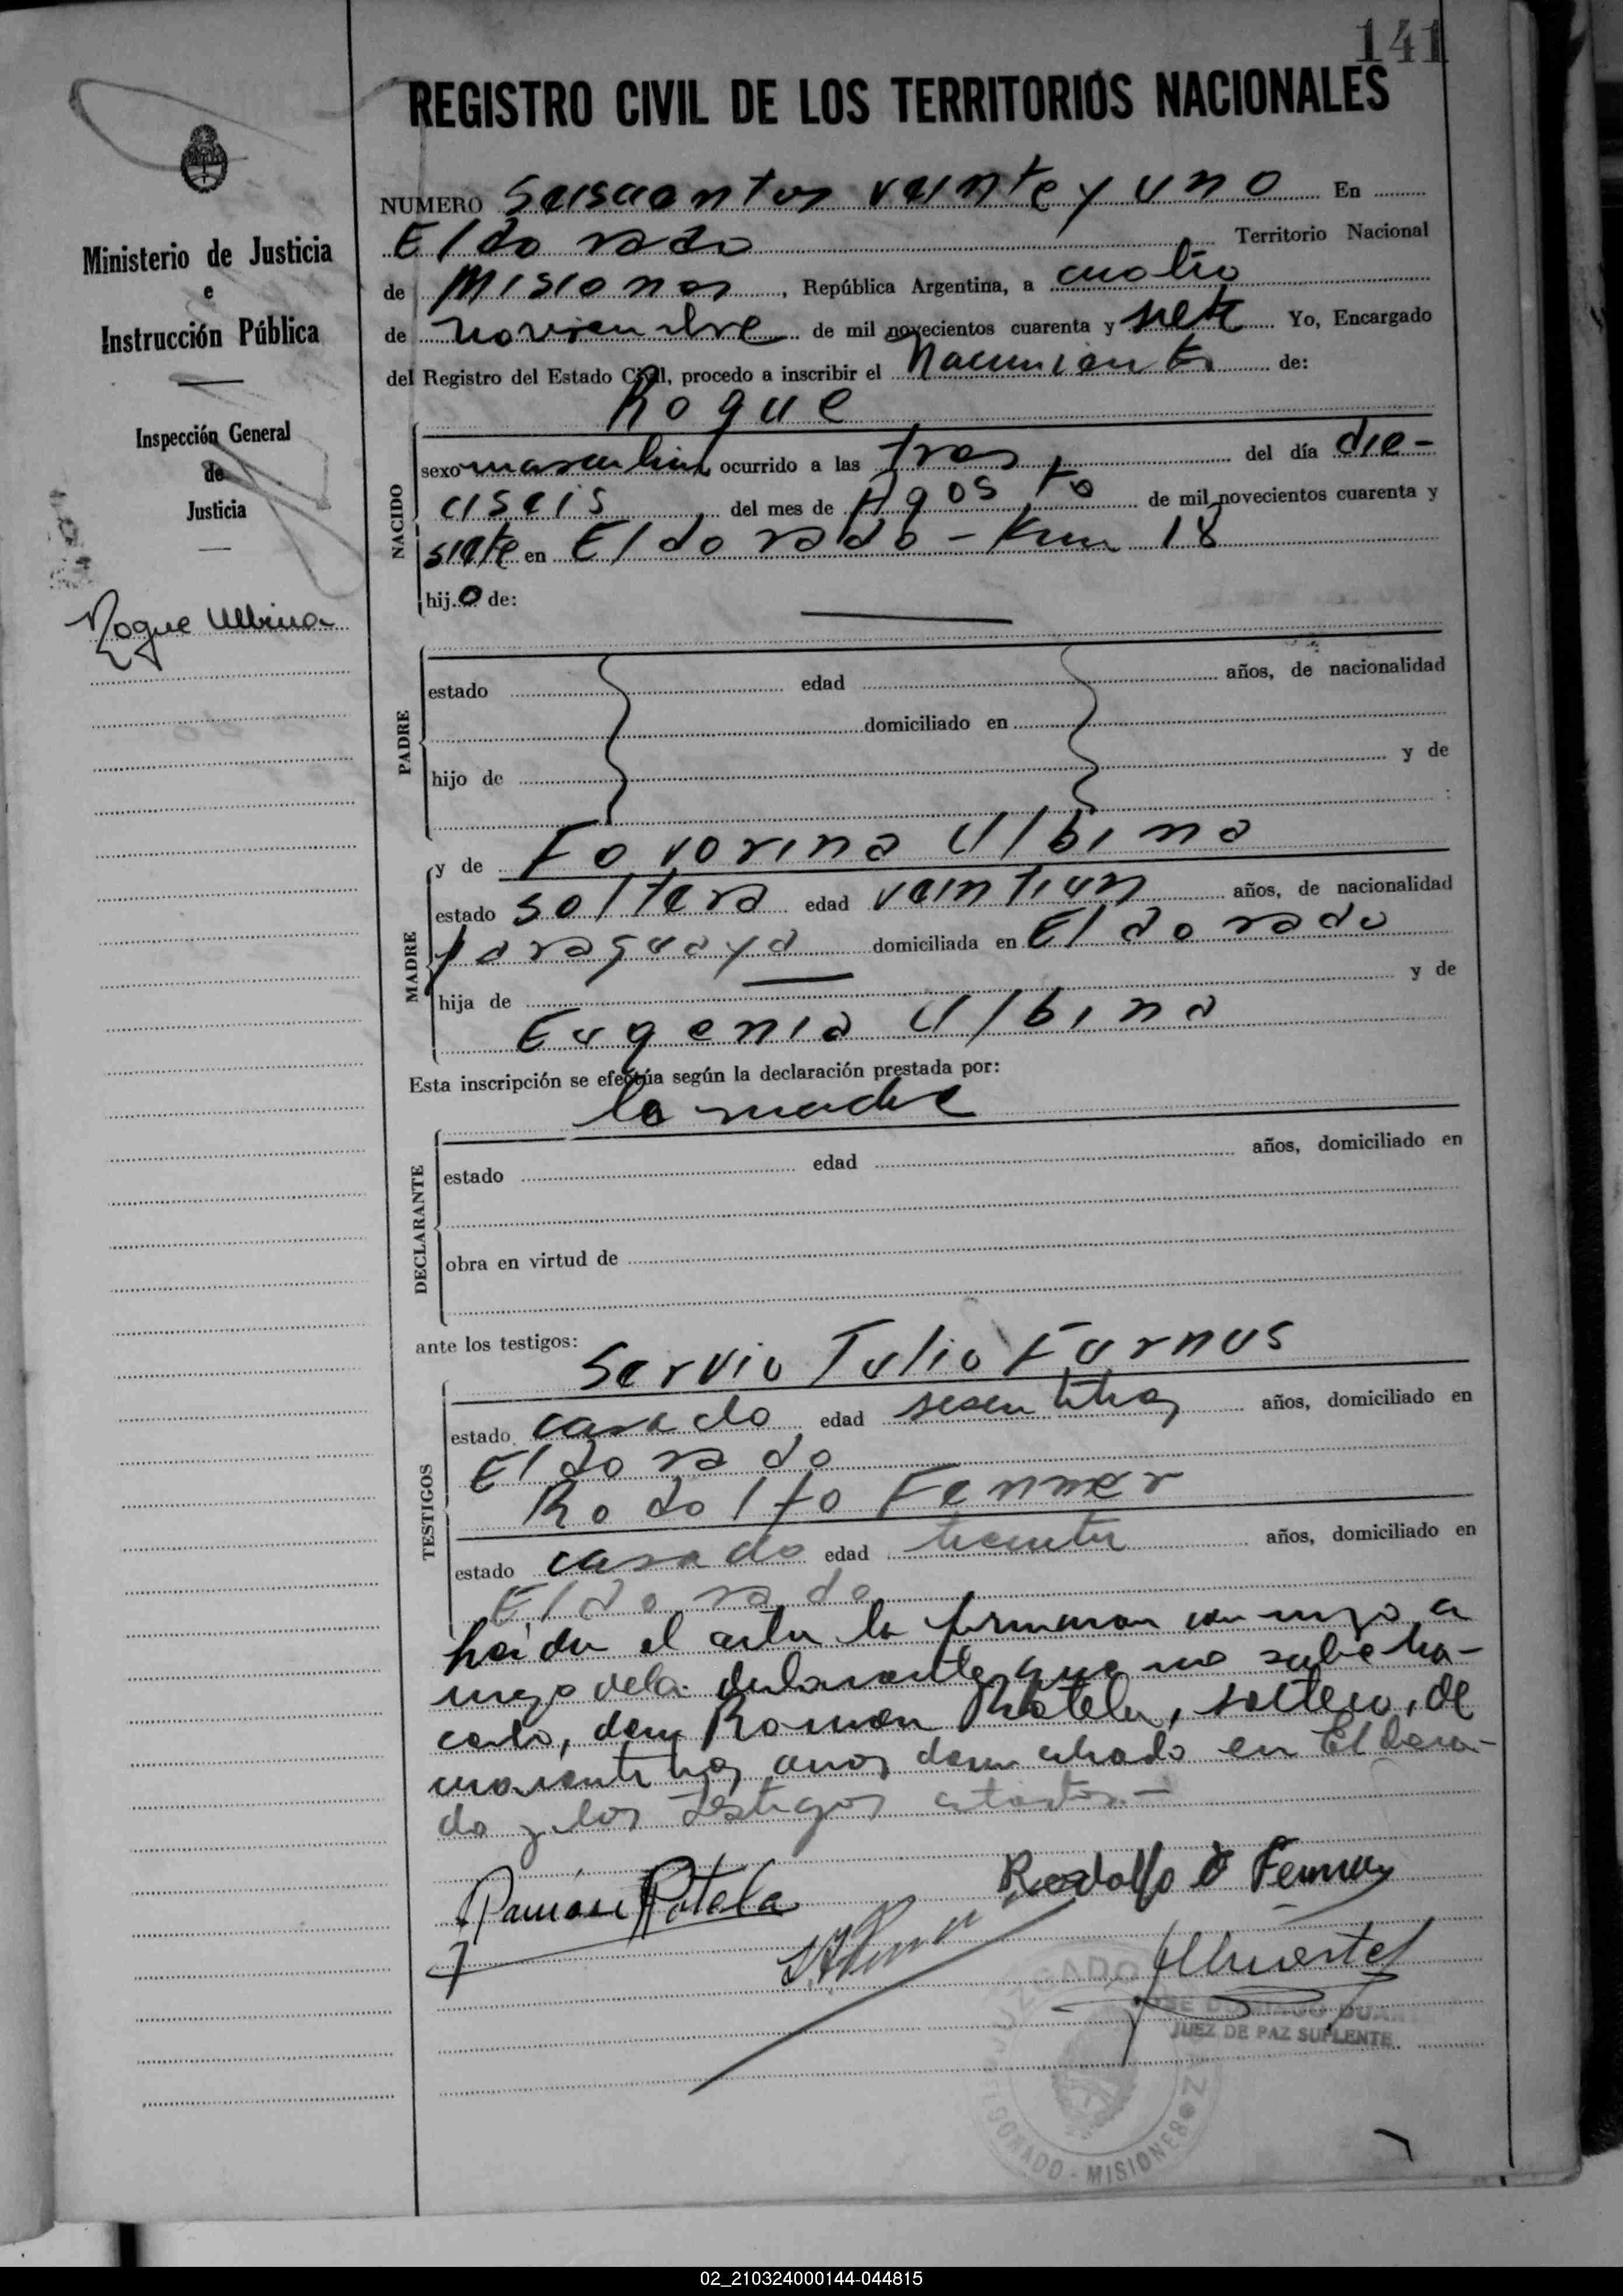 141
REGISTRO CIVIL DE LOS TERRITORIOS NACIONALES
Ministerio de Justicia
e
Instrucción Pública
Inspección General
de
Justicia
Roque Ulbina
NUMERO Seiscientos veinte y uno En
Eldorado Territorio Nacional
de Misiones, República Argentina, a cuatro
de noviembre de mil novecientos cuarenta y siete Yo, Encargado
del Registro del Estado Civil, procedo a inscribir el Nacimiento de:
Roque
NACIDO
sexo masculino ocurrido a las tres del día die-
ciseis del mes de Agosto de mil novecientos cuarenta y
siete en Eldorado - Km 18
hijo de:
PADRE
estado edad años, de nacionalidad
domiciliado en
hijo de y de
MADRE
y de Fovorina Ulbina
estado soltera edad veintiun años, de nacionalidad
paraguaya domiciliada en Eldorado
hija de y de
Eugenia Ulbina
Esta inscripción se efectúa según la declaración prestada por:
la madre
DECLARANTE
estado edad años, domiciliado en
obra en virtud de
ante los testigos:
Servio Tulio Furnus
TESTIGOS
estado casado edad años, domiciliado en
Eldorado
Rodolfo Fenner
estado casado edad treinta años, domiciliado en
Eldorado
Leida el acta la firmaron conmigo a
ruego de la declarante que no sabe ha-
cerlo, don Ramon Rotela, soltero, de
cuarentitres años domiciliado en Eldora-
do y los testigos citados.-
Ramón Rotela
Rodolfo Fenner
JUZGADO
JOSE DOMINGO DUARTE
JUEZ DE PAZ SUPLENTE
ELDORADO - MISIONES
02_210324000144-044815